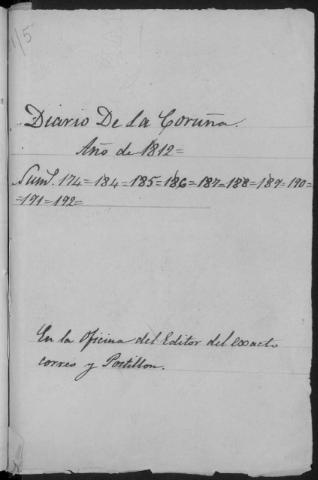 1/5
Diario De La Coruña.
Año de 1812=
Num.s 174=184=185=186=187=188=189=190=
=191=192=
En la Oficina del Editor del exacto
correo y Postillon.